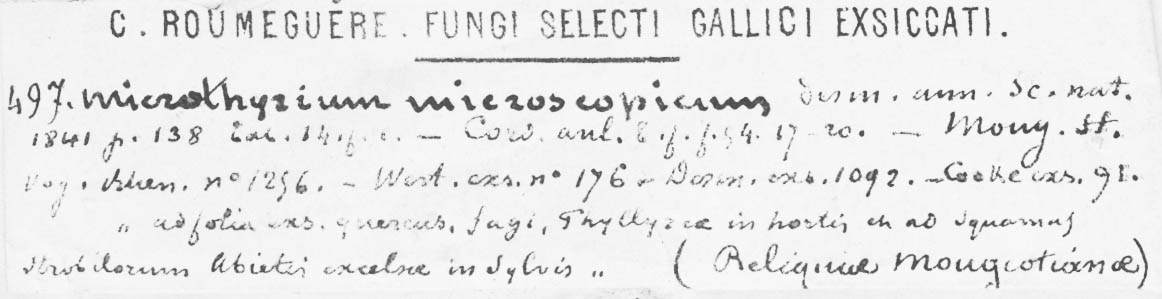 C. ROUMEGUÈRE. FUNGI SELECTI GALLICI EXSICCATI.
497. Microthyrium microscopicum Desm. ann. Sc. nat.
1841 p. 138 14. f. 1. – Cord. 54. 17-20. – Moug. St.
Vog. Rhen. no 1256. – West. exs. no 176 – Desm. exs. 1092. – Cooke exs. 91.
„ ad folia exs. quercus, fagi, Phyllyreæ in hortis et ad squamas
strobilorum Abietis excelsæ in Sylvis „ (Reliquiæ Mougeotianæ)